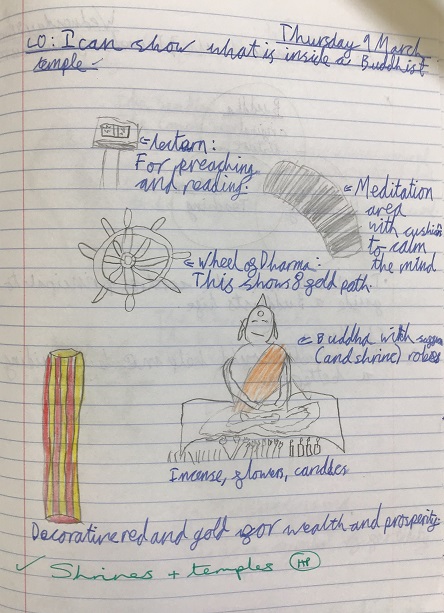 Thursday 9 March
LO: I can show what is inside a Buddhist
temple
lectern:
For preaching
and reading.
Meditation
area
with cushions
to calm
the mind
Wheel of Dharma:
This shows 8 fold path.
Buddha with
(and shrine) robes
Incense, flowers, candles
Decorative red and gold for wealth and prosperity
✓ Shrines + temples HP